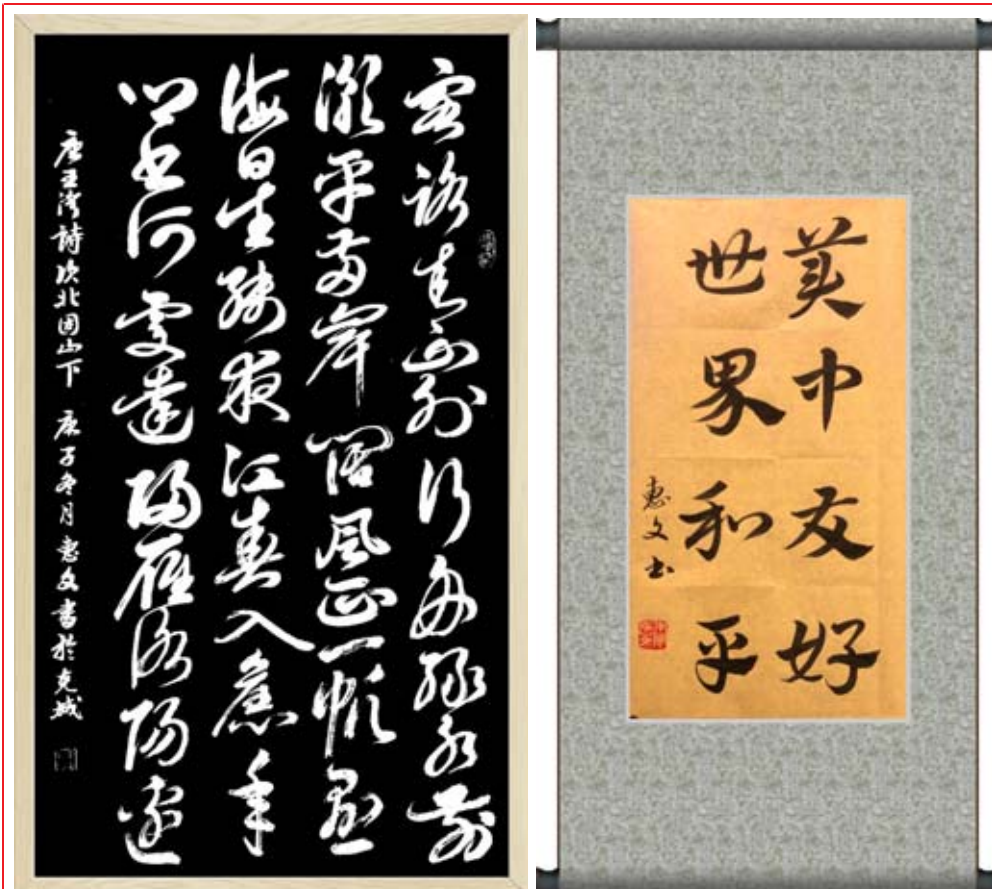 客路青山外行舟綠水前
潮平兩岸闊風正一帆懸
海日生殘夜江春入舊年
鄉書何處達歸雁洛陽邊
唐王湾詩次北固山下 庚子冬月惠文書於克城
美中友好
世界和平
惠文书